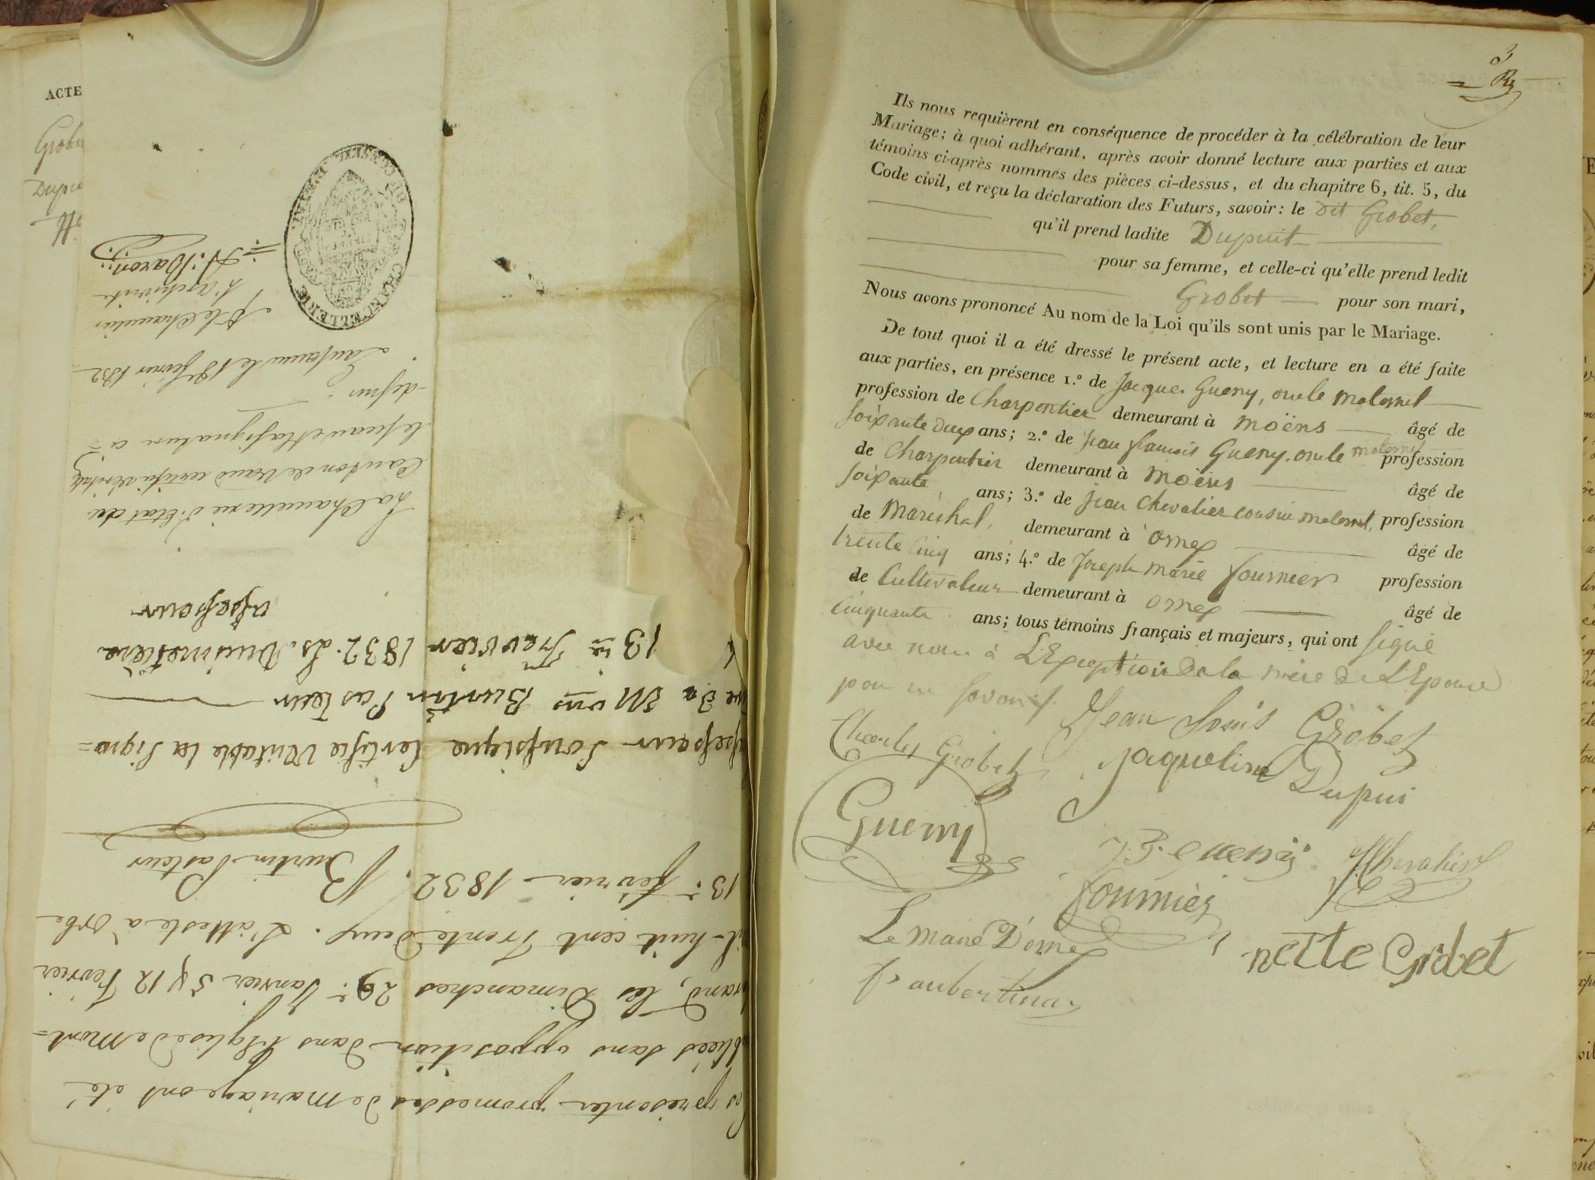 ACTE
Les présentes promesses de mariage ont été
publiées sans opposition dans l'Eglise de Mont=
, les Dimanches 29e. Janvier 5 & 12 Février
mil-huit cent trente deux. L'atteste à Orbe
13e. février 1832. Burtin Pasteur
assesseur soussigné Certifie Véritable la Signa=
ture de Mons Burtin Pasteur
13me Fevrier 1832. Ls. Duimetière
assesseur
La Chancellerie d'Etat du
Canton de Vaud certifie véritable
le sceau & la signature ci=
dessus.
Lausanne le 18 février 1832
Pr le Chancelier
L'archiviste
A. Baron
3
Ils nous requièrent en conséquence de procéder à la célébration de leur
Mariage; à quoi adhérant, après avoir donné lecture aux parties et aux
témoins ci-après nommés des pièces ci-dessus, et du chapitre 6, tit. 5, du
Code civil, et reçu la déclaration des Futurs, savoir: le dit Grobet,
qu'il prend ladite Dupuit
pour sa femme, et celle-ci qu'elle prend ledit
Grobet pour son mari,
Nous avons prononcé Au nom de la Loi qu'ils sont unis par le Mariage.
De tout quoi il a été dressé le présent acte, et lecture en a été faite
aux parties, en présence 1.° de Jacques Gueny, oncle maternel
profession de Charpentier demeurant à moëns âgé de
soixante deux ans; 2.° de jean françois Gueny, oncle maternel profession
de Charpentier demeurant à moëns âgé de
soixante ans; 3.° de jean Chevalier cousin maternel, profession
de Maréshal, demeurant à ornex âgé de
trente cinq ans; 4.° de Joseph marie fournier profession
de Cultivateur demeurant à ornex âgé de
cinquante ans; tous témoins français et majeurs, qui ont signé
avec nous à L'Exception de la mère de L'Epouse
pour ne savoir.
Jean Louis Gröbet
Charles Grobet Jaqueline Dupui
Gueny J F. guenÿ J Chevalier
fournier
Le maire D'ornex nette Gröbet